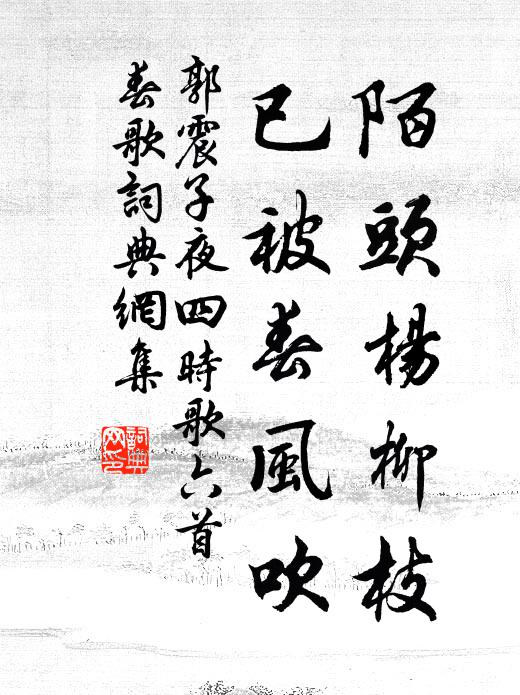 陌頭楊柳枝
已被春風吹
郭震子夜四時歌六首
春歌詞典網集
詞典
网印